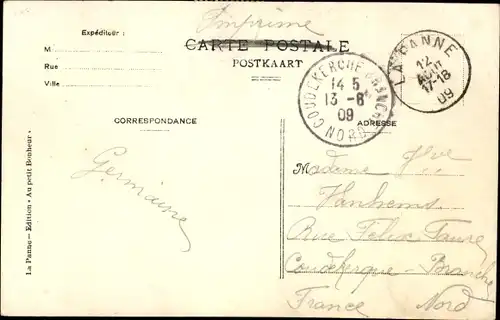 Imprimé
Expéditeur :
M
Rue
Ville
CARTE POSTALE
POSTKAART
COUDEKERQUE BRANCHE
14 5
13 -8
09
NORD
LA PANNE
12
AOUT
17-18
09
CORRESPONDANCE
ADRESSE
Germaine
Madame
Vanhems
Rue Felix Faure
Coudekerque - Branche
France Nord
La Panne — Edition « Au petit Bonheur »